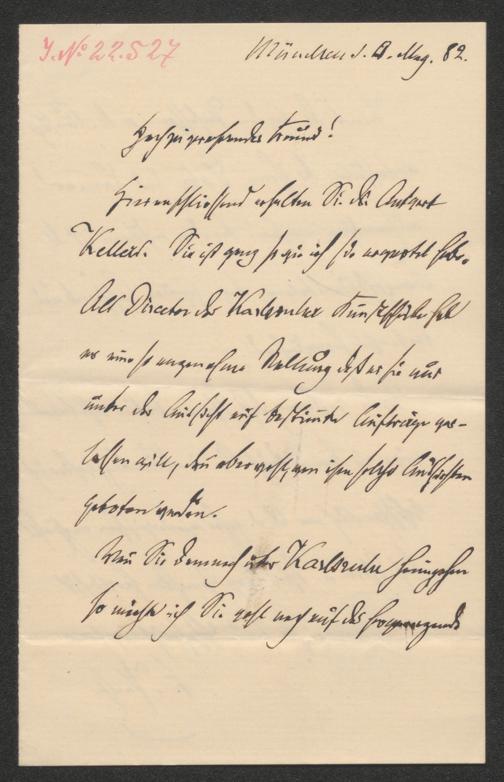 J. No 22.527
München d. 8. Mag. 82.
Hochzuverehrender Freund!
Hieranschließend erhalten Sie die Antwort
Kellers. Sie ist ganz so wie ich sie erwartet habe.
Als Director der Karlsruher Kunstschule hat
er eine so angenehme Stellung daß er sie nur
unter der Aussicht auf bestimmte Aufträge ver-
lassen will,
geboten werden.
Wenn Sie demnach über Karlsruhe
so möchte ich Sie wohl noch auf das